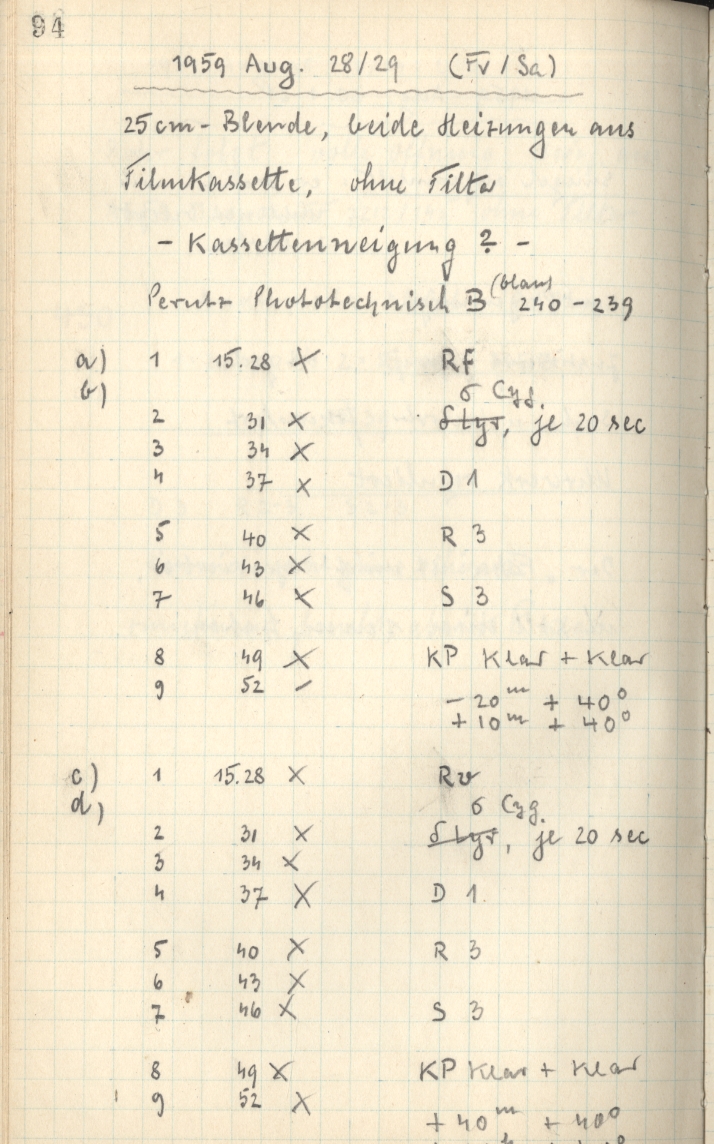 94
1959 Aug. 28/29 (Fr/Sa)
25cm-Blende, beide Heizungen aus
Filmkassette, ohne Filter
- Kassettenneigung ? -
Perutz Phototechnisch B (blau) 240-239
a) 1 15.28 X RF
b) σ Cyg.
2 31 X δ Lyr, je 20 sec
3 34 X
4 37 X D 1
5 40 X R 3
6 43 X
7 46 X S 3
8 49 X KP Klar + Klar
9 52 –
-20m + 40°
+10m + 40°
c) 1 15.28 X Rv
d) σ Cyg.
2 31 X δ Lyr, je 20 sec
3 34 X
4 37 X D 1.
5 40 X R 3
6 43 X
7 46 X S 3
8 49 X KP Klar + Klar
9 52 X
+40m + 40°